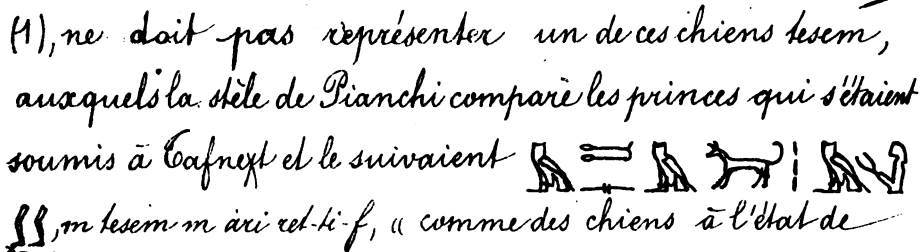 (1), ne doit pas représenter un de ces chiens tesem,
auxquels la stèle de Pianchi compare les princes qui s'étaient
soumis à Tafneχt et le suivaient
, m tesem m àri ret-ti-f, « comme des chiens à l'état de